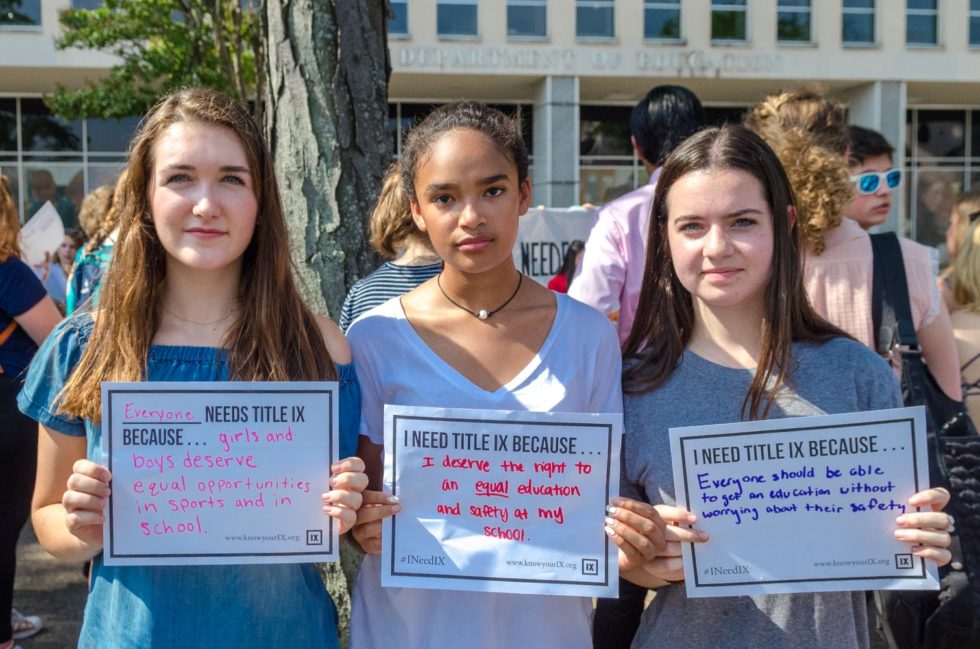 DEPARTMENT OF EDUCATION
NEED
Everyone NEEDS TITLE IX
BECAUSE... girls and
boys deserve
equal opportunities
in sports and in
school.
www.knowyourIX.org IX
I NEED TITLE IX BECAUSE...
I deserve the right to
an equal education
and safety at my
school.
#INeedIX www.knowyourIX.org IX
I NEED TITLE IX BECAUSE...
Everyone should be able
to get an education without
worrying about their safety
#INeedIX www.knowyourIX.org IX